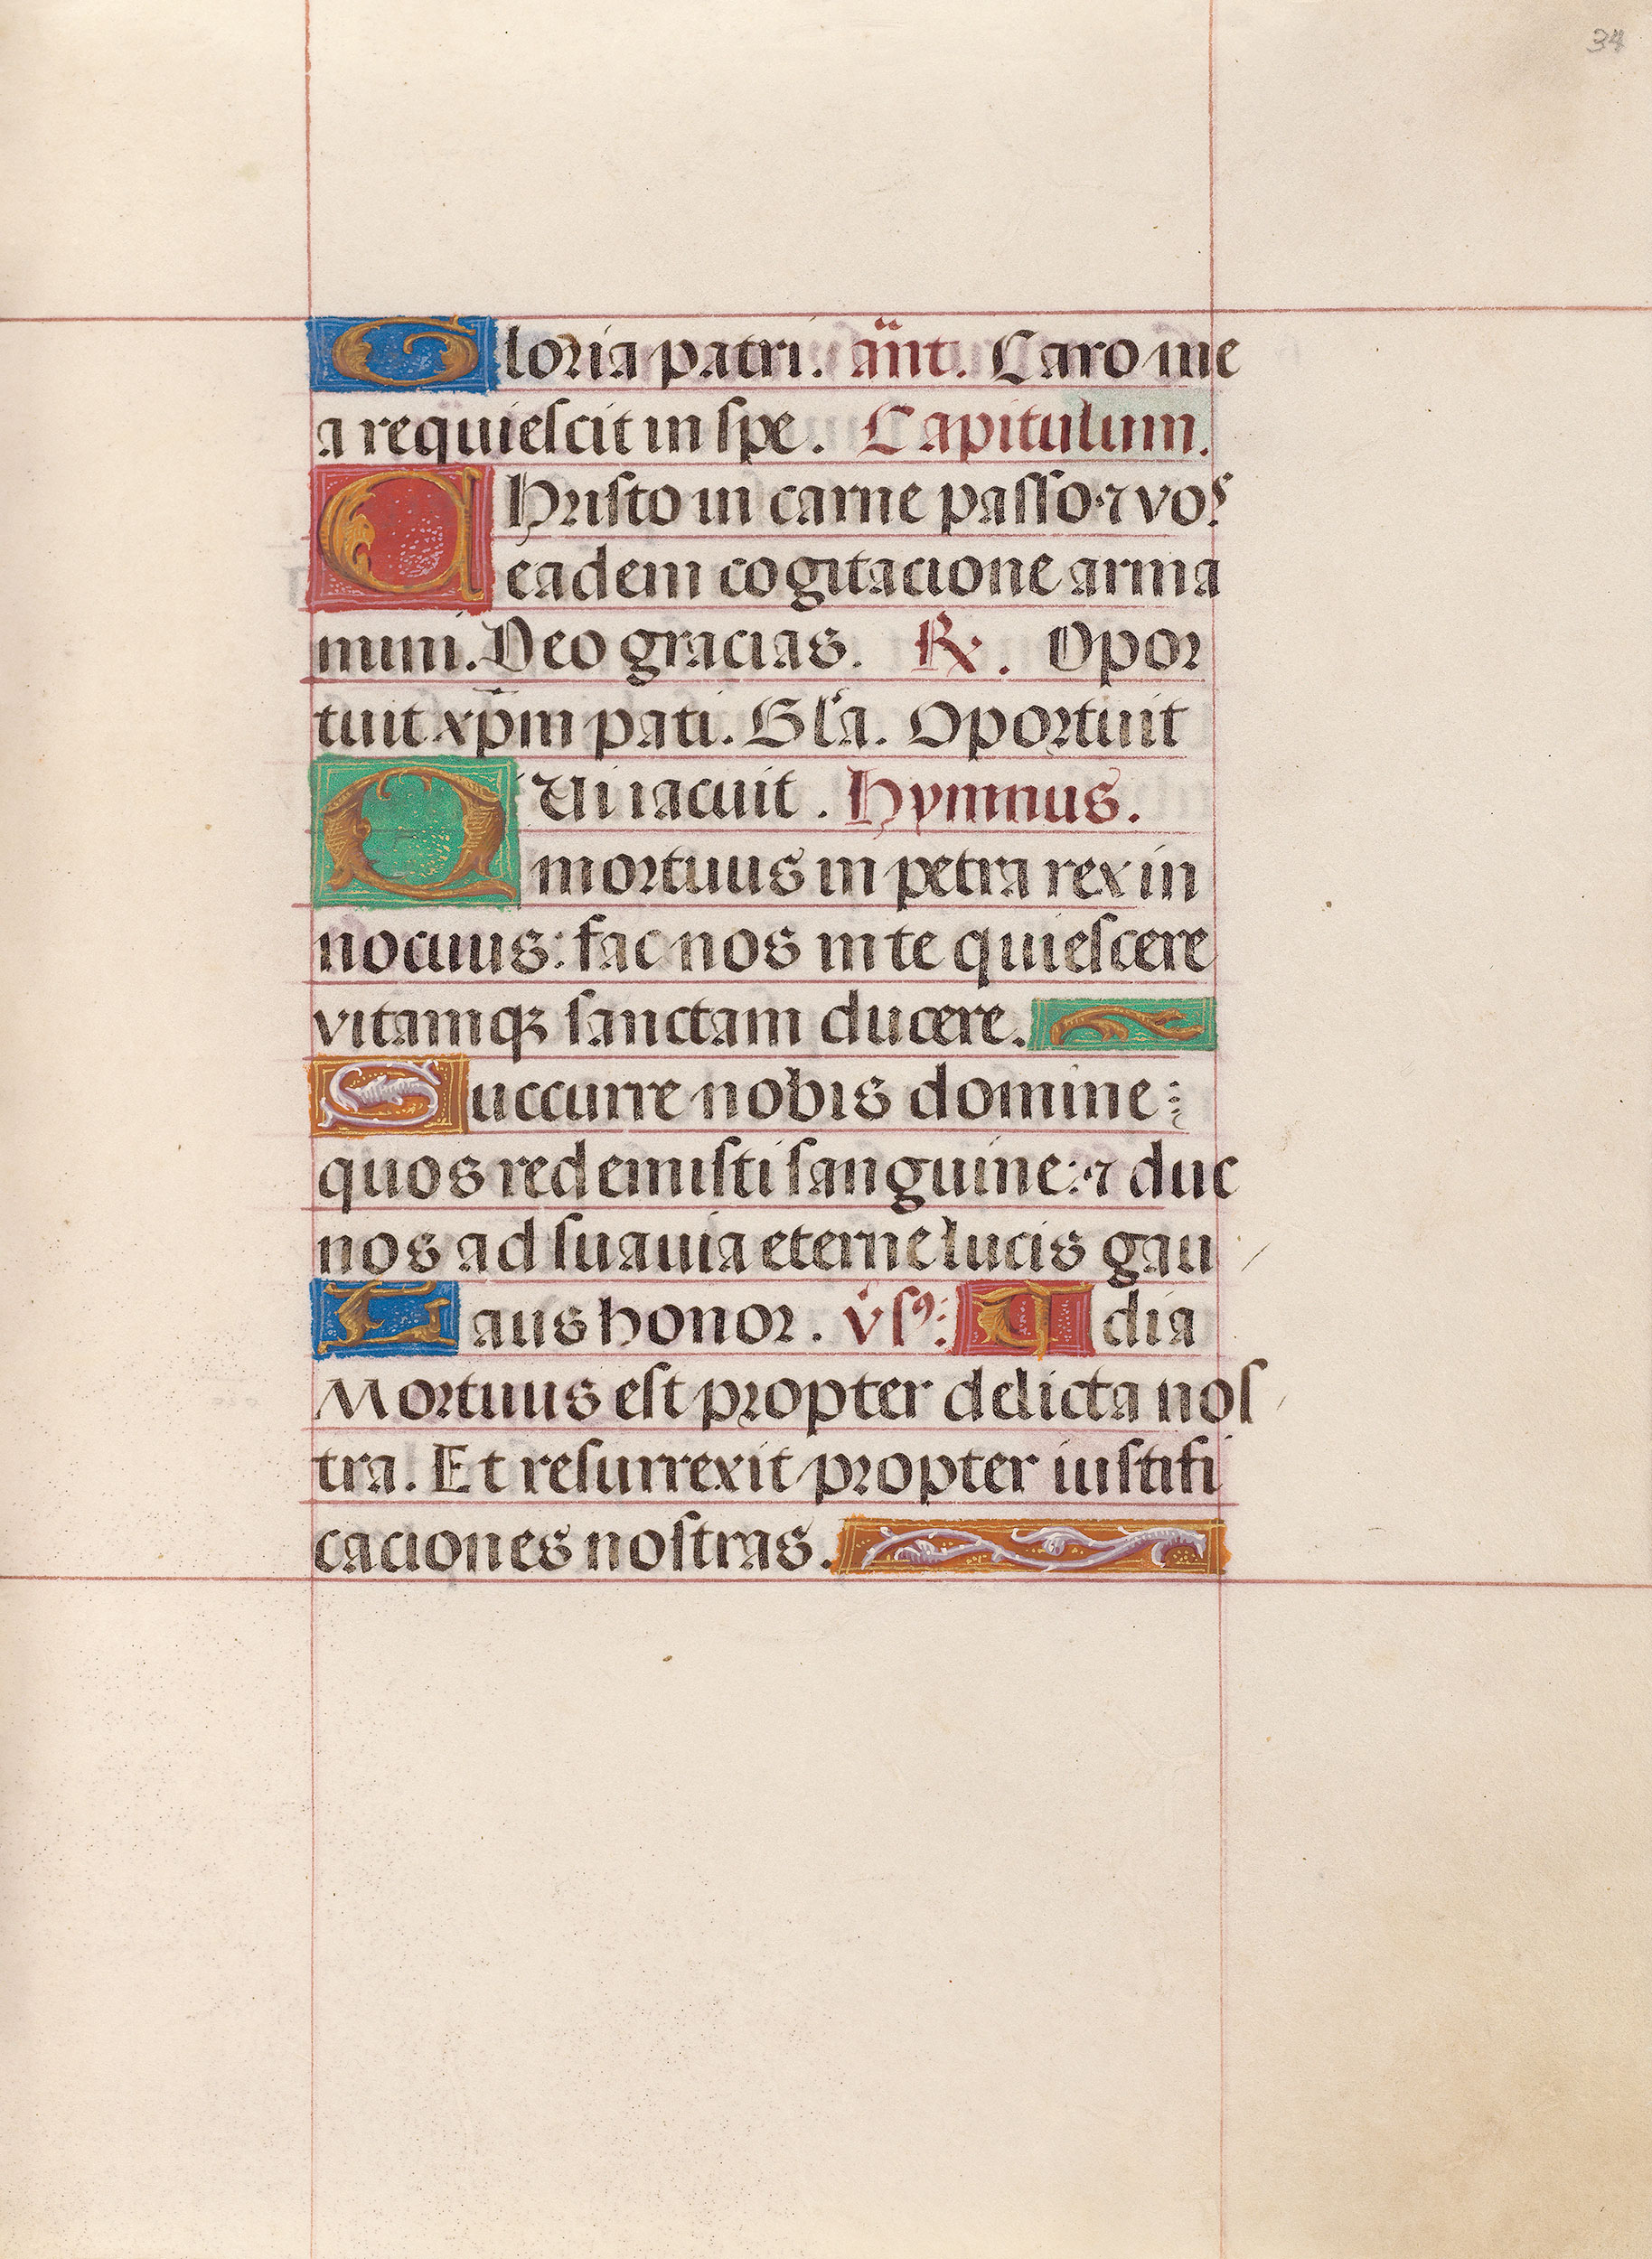 34
Gloria patri. añt. Caro me
a requiescit in spe. Capitulum.
Christo in carne passo: ⁊ vos
eadem cogitacione arma
mini. Deo gracias. ℟. Opor
tuit xp̄m pati. Gl'a. Oportuit
QVi iacuit. Hymnus.
mortuus in petra rex in
nocuus: fac nos in te quiescere
vitamqꝫ sanctam ducere.
Succurre nobis domine:
quos redemisti sanguine: ⁊ duc
nos ad suauia eterne lucis gau
Laus honor. vſꝰ: dia
Mortuus est propter delicta nos
tra. Et resurrexit propter iustifi
caciones nostras.